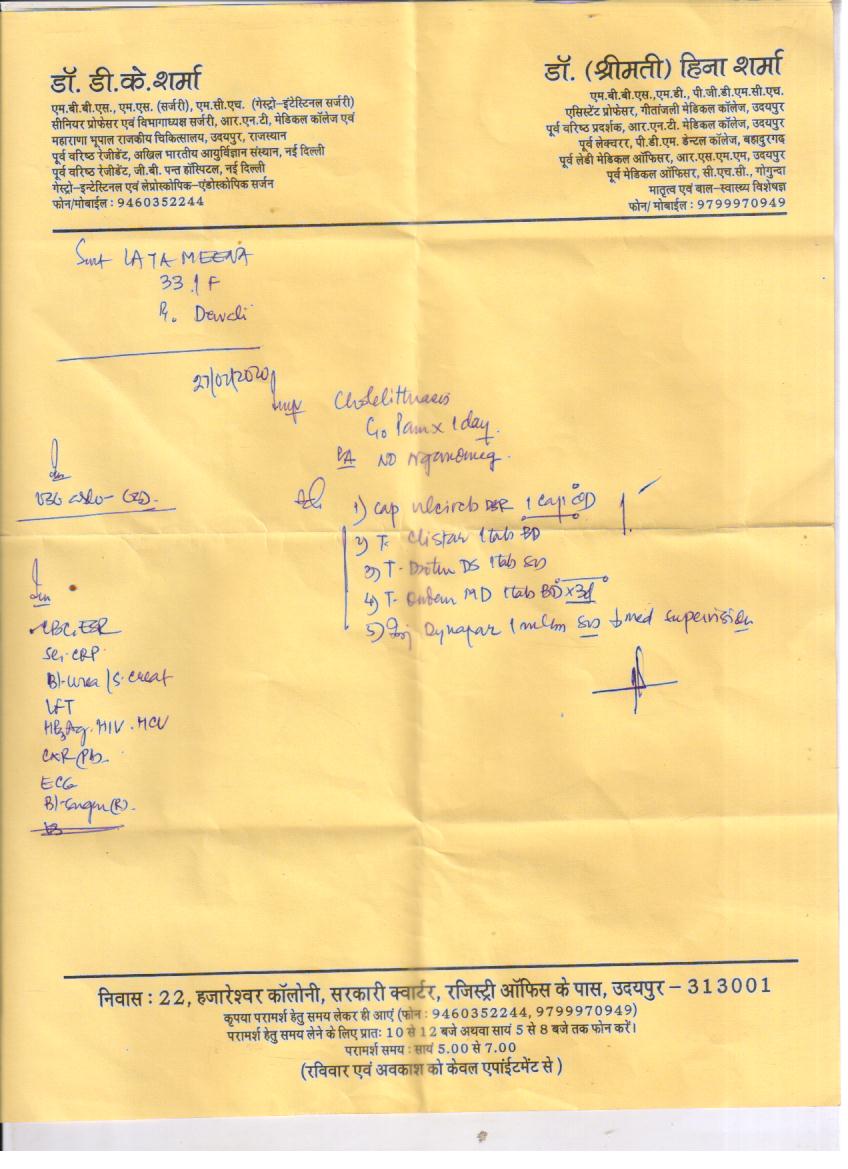 डॉ. डी.के.शर्मा
एम.बी.बी.एस., एम.एस. (सर्जरी), एम.सी.एच. (गेस्ट्रो-इंटेस्टिनल सर्जरी)
सीनियर प्रोफेसर एवं विभागाध्यक्ष सर्जरी, आर.एन.टी. मेडिकल कॉलेज एवं
महाराणा भूपाल राजकीय चिकित्सालय, उदयपुर, राजस्थान
पूर्व वरिष्ठ रेजीडेंट, अखिल भारतीय आयुर्विज्ञान संस्थान, नई दिल्ली
पूर्व वरिष्ठ रेजीडेंट, जी.बी. पन्त हॉस्पिटल, नई दिल्ली
गेस्ट्रो-इन्टेस्टिनल एवं लेप्रोस्कोपिक-एंडोस्कोपिक सर्जन
फोन/मोबाईल : 9460352244
डॉ. (श्रीमती) हिना शर्मा
एम.बी.बी.एस.,एम.डी., पी.जी.डी.एम.सी.एच.
एसिस्टेंट प्रोफेसर, गीतांजली मेडिकल कॉलेज, उदयपुर
पूर्व वरिष्ठ प्रदर्शक, आर.एन.टी. मेडिकल कॉलेज, उदयपुर
पूर्व लेक्चरर, पी.डी.एम. डेन्टल कॉलेज, बहादुरगढ़
पूर्व लेडी मेडिकल ऑफिसर, आर.एस.एम.एम, उदयपुर
पूर्व मेडिकल ऑफिसर, सी.एच.सी., गोगुन्दा
मातृत्व एवं बाल-स्वास्थ्य विशेषज्ञ
फोन/ मोबाईल : 9799970949
Smt LATA MEENA
33 / F
R. Dewali
Cholelithiasis
C/o Pain x 1 day
PA NO
1) Cap DSR 1 cap OD
2) T- Clistar 1 tab BD
3) T- Drotin DS 1 tab
4) T- MD 1 tab BD x 3d
5) Inj Dynapar 1 ml Im med supervision
CBC, ESR
Se. CRP
Bl-urea / S. creat
LFT
HBsAg. HIV. HCV
CXR (PA)
ECG
Bl-sugar (R)
निवास : 22, हजारेश्वर कॉलोनी, सरकारी क्वार्टर, रजिस्ट्री ऑफिस के पास, उदयपुर – 313001
कृपया परामर्श हेतु समय लेकर ही आएं (फोन : 9460352244, 9799970949)
परामर्श हेतु समय लेने के लिए प्रातः 10 से 12 बजे अथवा सायं 5 से 8 बजे तक फोन करें।
परामर्श समय : सायं 5.00 से 7.00
(रविवार एवं अवकाश को केवल एपांईटमेंट से)